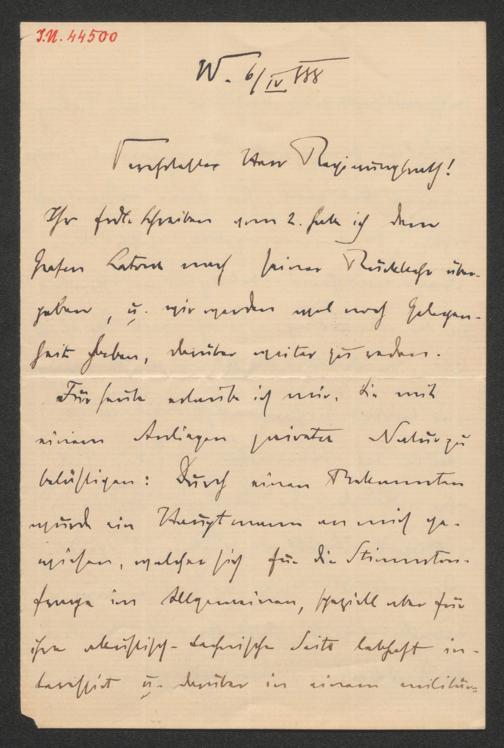 I.N. 44500
W. 6/IV 888
Verehrtester Herr Regierungsrath!
Ihr frdl. Schreiben vom 2. habe ich dem
Grafen Latour nach seiner Rückkehr über-
geben, u. wir werden wol noch Gelegen-
heit haben, darüber weiter zu reden.
Für heute erlaube ich mir, Sie mit
einem Anliegen privater Natur zu
belästigen: Durch einen Bekannten
wurde ein Hauptmann an mich ge-
wiesen, welcher sich für die Stimmton-
frage im Allgemeinen, speziell aber für
ihre akustisch-technische Seite lebhaft in-
teressirt u. darüber in einem militär-